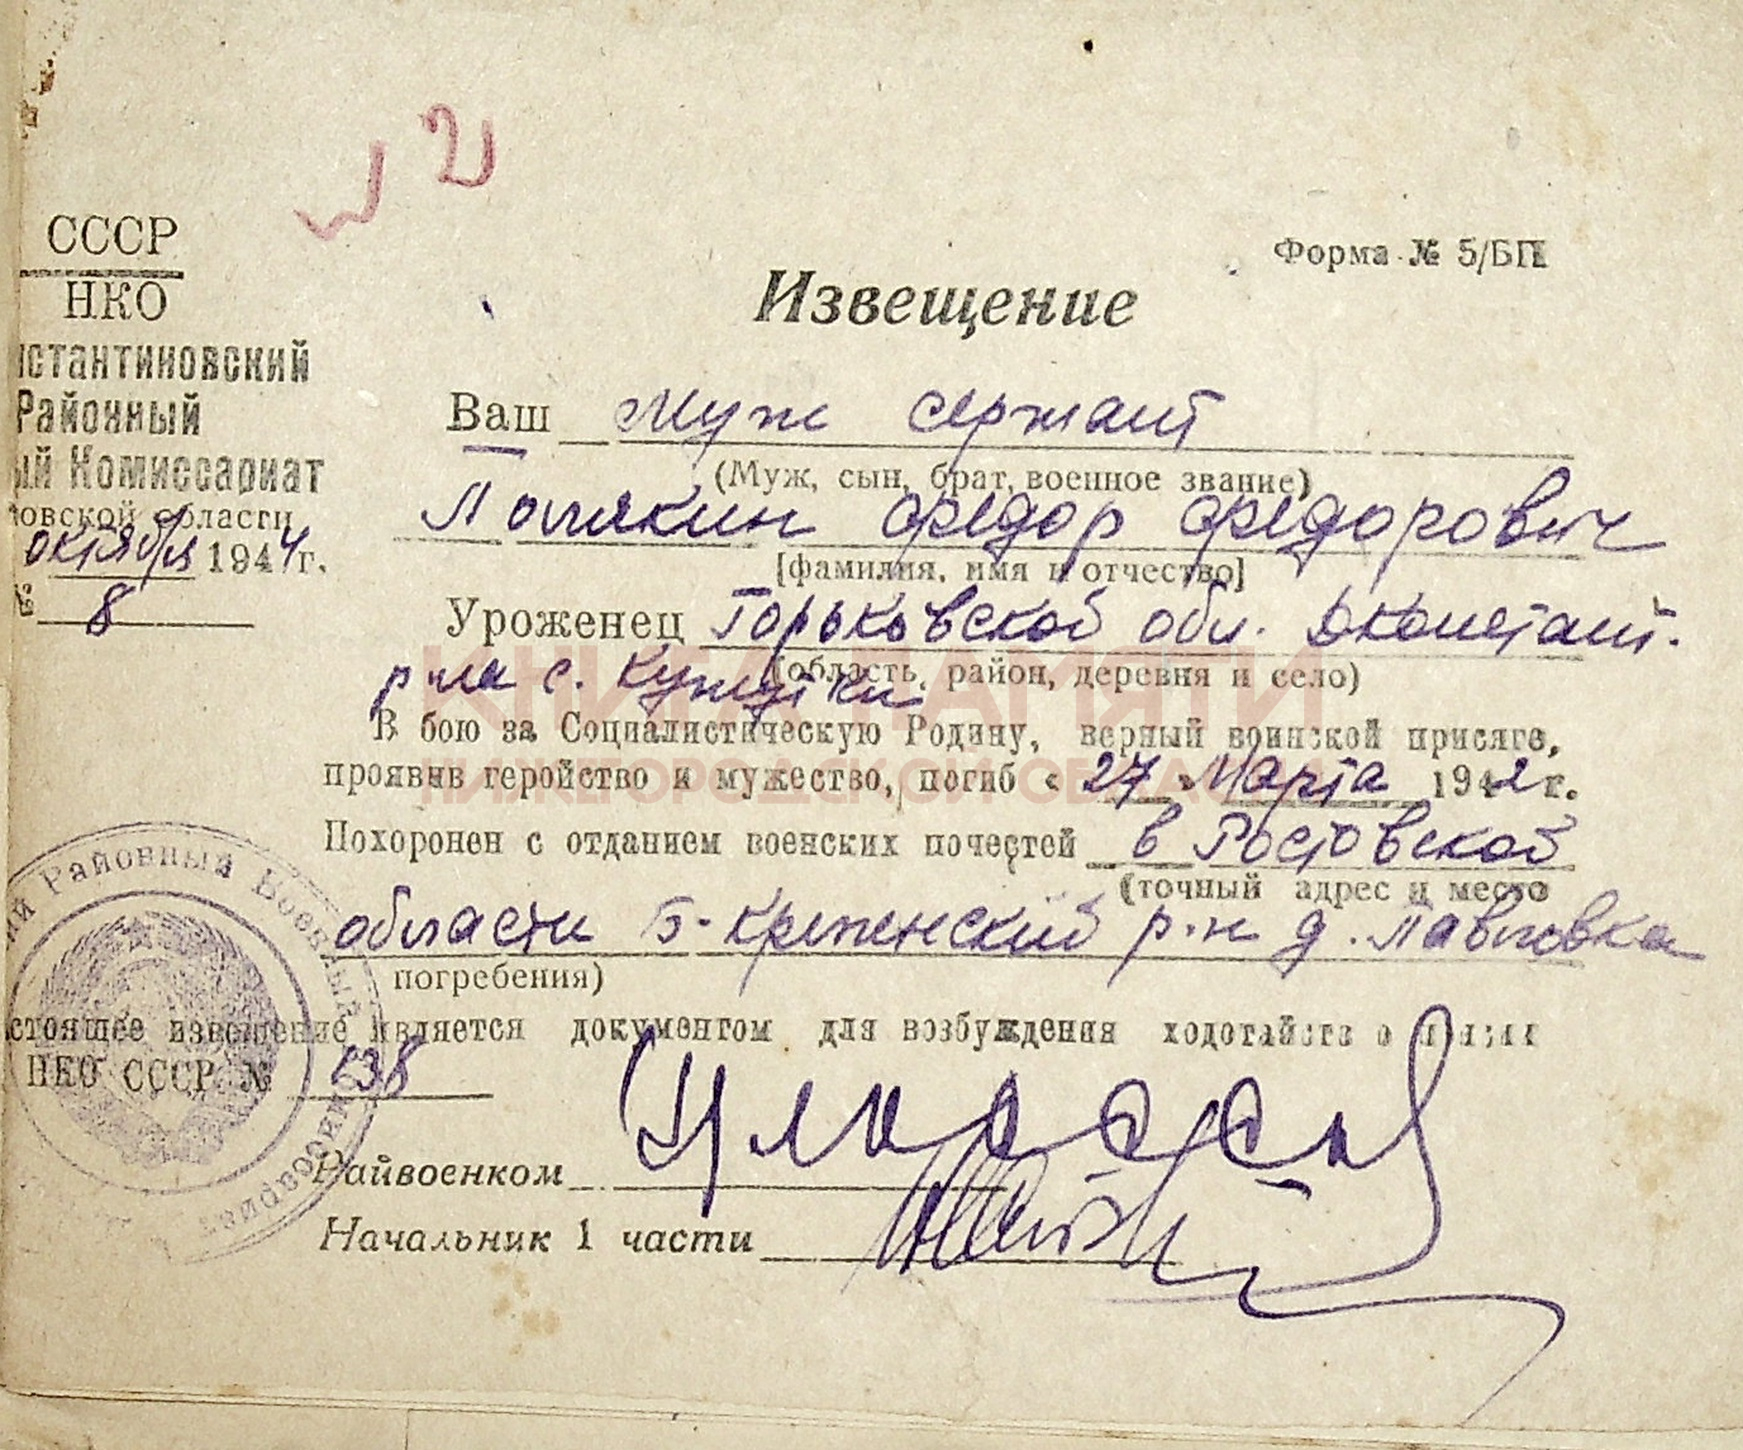 СССР
НКО
нстантиновский
Районный
ый Комиссариат
овской области
октября 1944 г.
№ 8
Форма № 5/БП
Извещение
Ваш муж сержант
(Муж, сын, брат, военное звание)
Федор Федорович
[фамилия, имя и отчество]
Уроженец Горьковской обл. Дконстант.
(область, район, деревня и село)
р-на с. Кужутки.
В бою за Социалистическую Родину, верный воинской присяге,
проявив геройство и мужество, погиб « 27 » Марта 1942 г.
Похоронен с отданием военских почестей в Ростовской
(точный адрес и место
области Б-Крепенский р-н д. Павловка
погребения)
стоящее извещение является документом для возбуждения ходотайств о
НКО СССР № 138
Райвоенком
Начальник 1 части
Районный Военный
КНИГА ПАМЯТИ
НИЖЕГОРОДСКОЙ ОБЛАСТИ